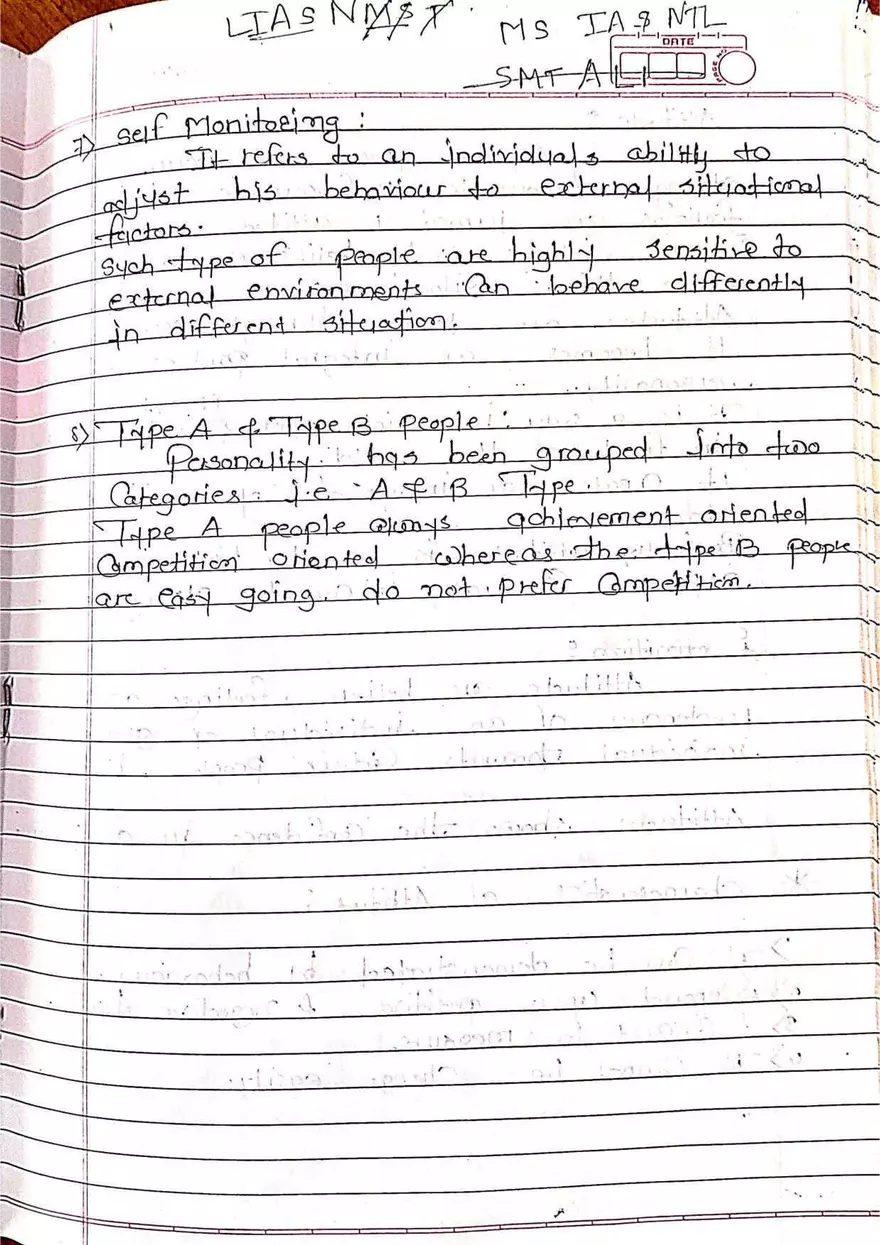 LIAS NMST
MS IAS NTL
DATE
PAGE NO.
SMT ALI
7) Self Monitoring :
It refers to an individuals ability to
adjust his behaviour to external situational
factors.
Such type of people are highly sensitive to
external environments Can behave differently
in different situation.
8) Type A & Type B people :
Personality has been grouped into two
Categories i.e A & B Type.
Type A people always achievement oriented
Competition oriented whereas the type B people
are easy going. do not prefer Competition.